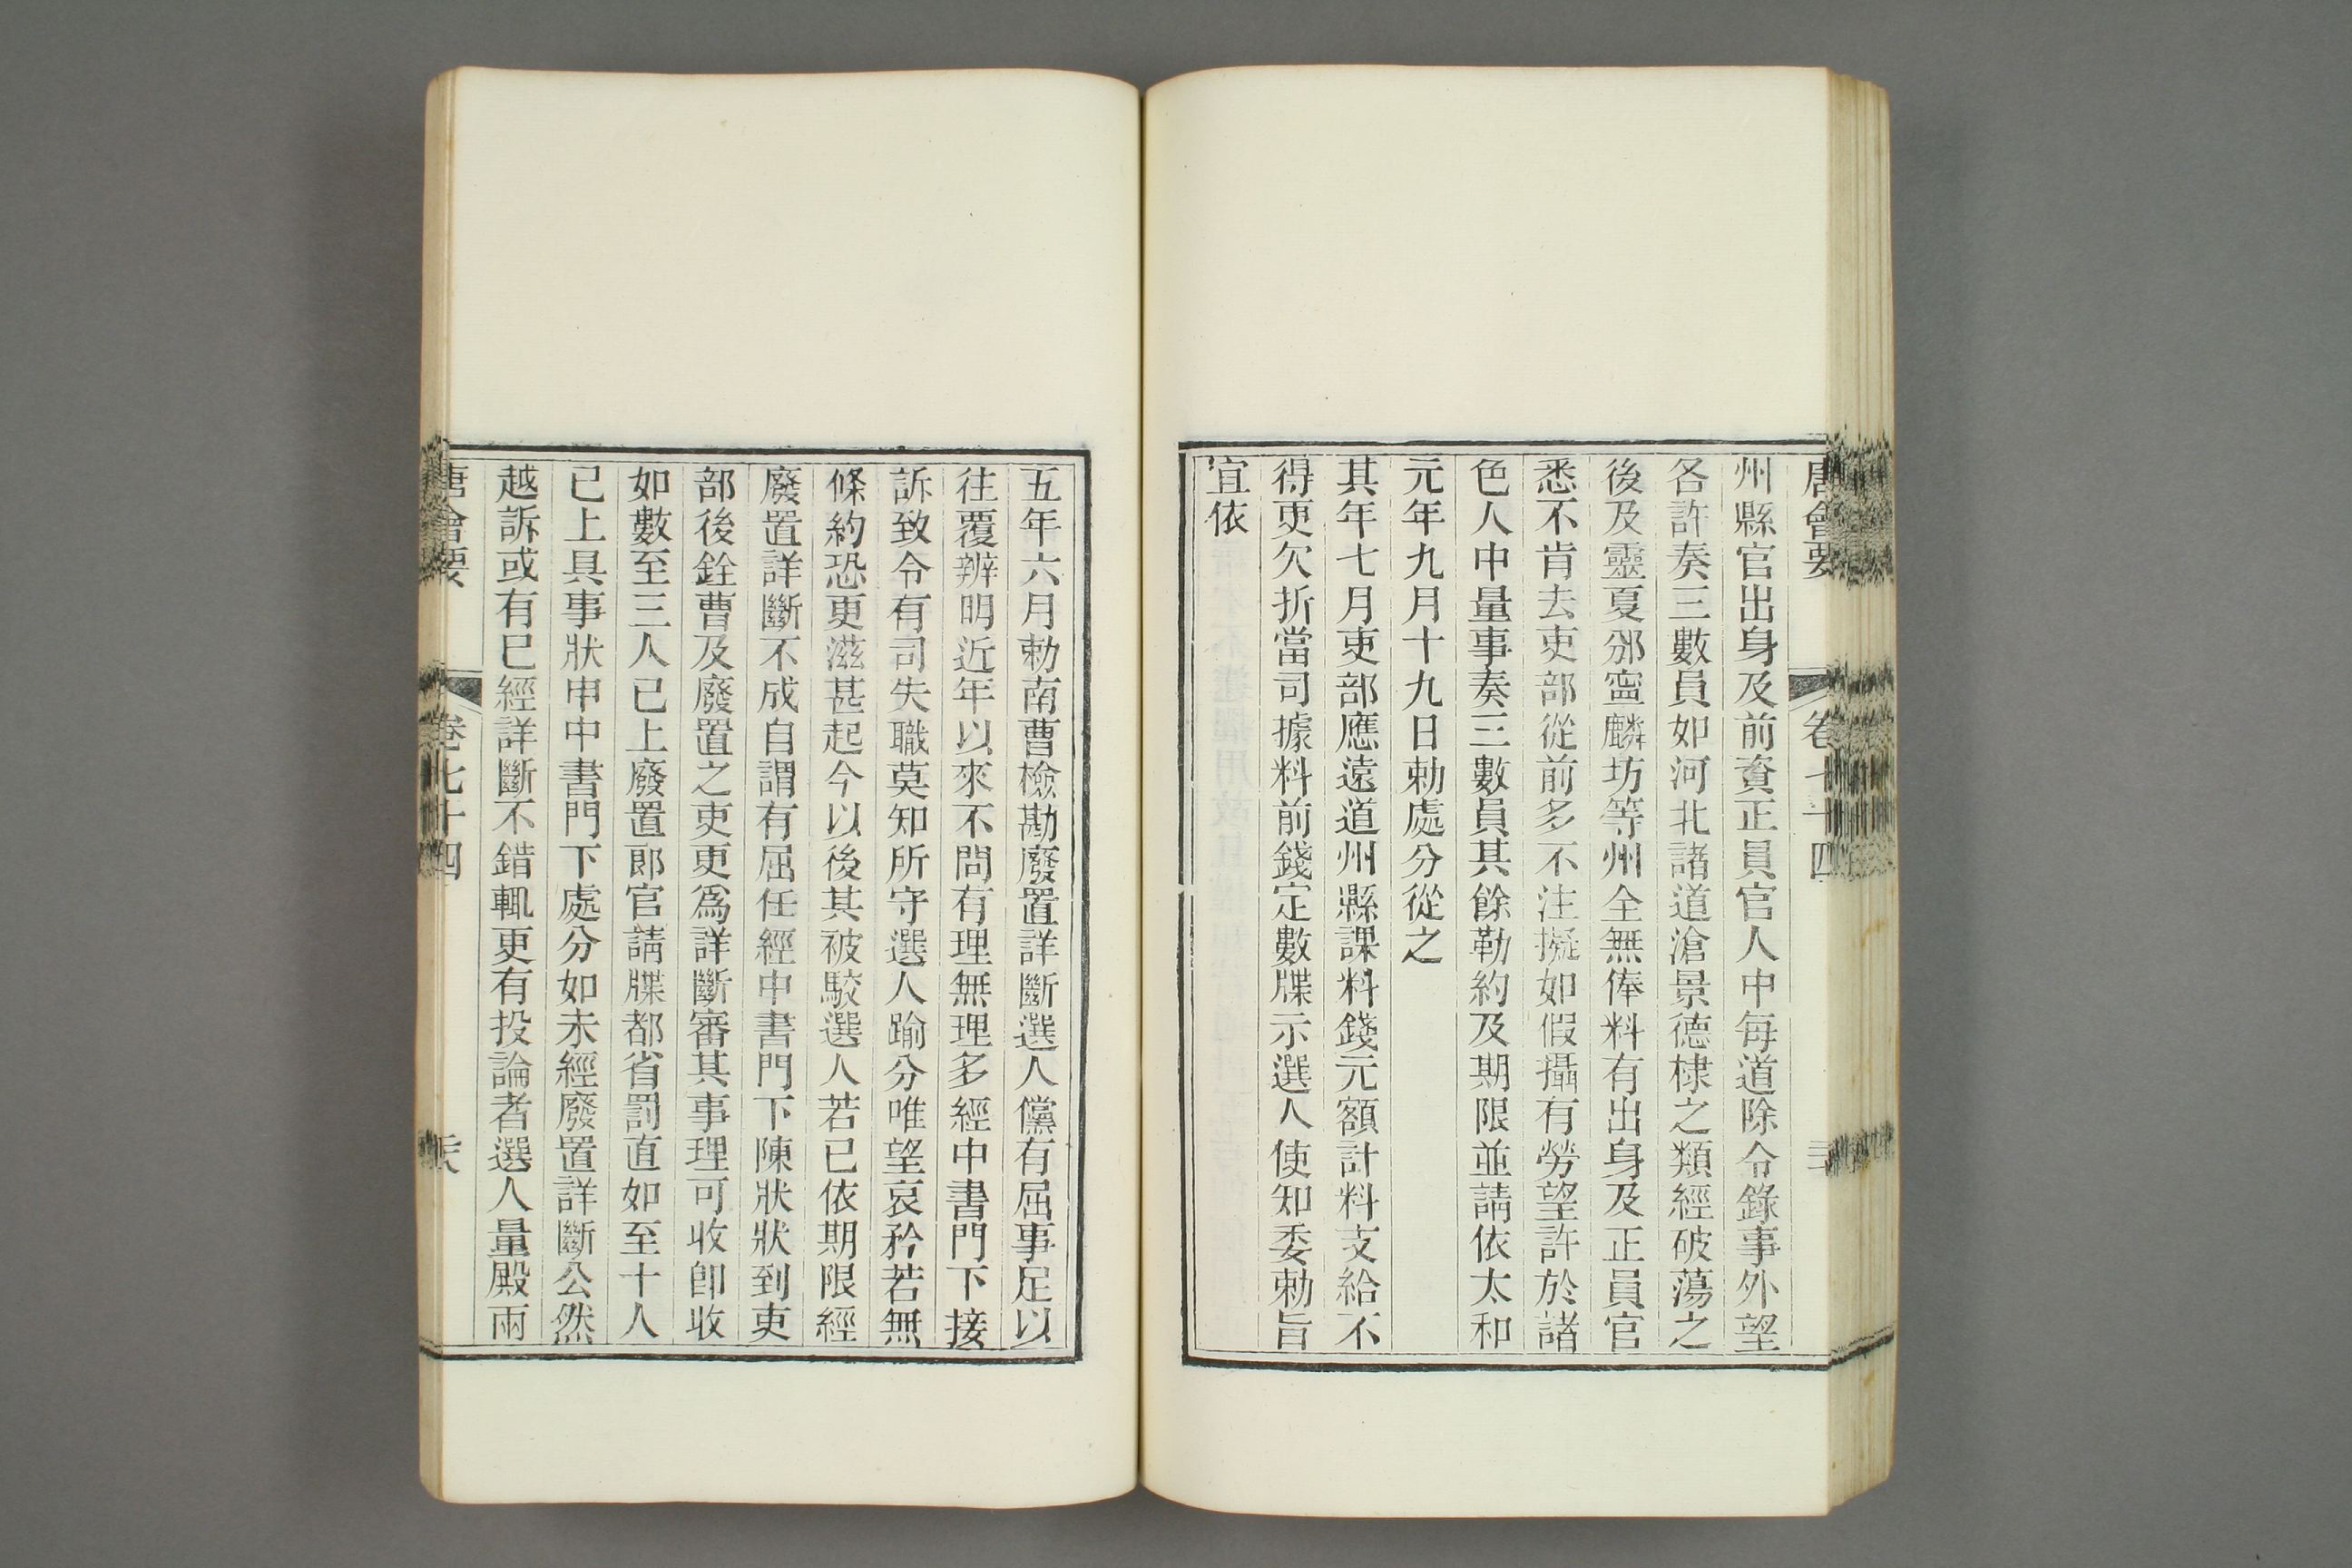 唐會要 卷七十四
州縣官出身及前資正員官人中每道除令錄事外望
各許奏三數員如河北諸道滄景德棣之類經破蕩之
後及靈夏邠寧麟坊等州全無俸料有出身及正員官
悉不肯去吏部從前多不注擬如假攝有勞望許於諸
色人中量事奏三數員其餘勒約及期限並請依太和
元年九月十九日勅處分從之
其年七月吏部應遠道州縣課料錢元額計料支給不
得更欠折當司據料前錢定數牒示選人使知委勅旨
宜依
五年六月勅南曹檢勘廢置詳斷選人儻有屈事足以
往覆辨明近年以來不問有理無理多經中書門下接
訴致令有司失職莫知所守選人踰分唯望哀矜若無
條約恐更滋甚起今以後其被駮選人若已依期限經
廢置詳斷不成自謂有屈任經中書門下陳狀狀到吏
部後銓曹及廢置之吏更爲詳斷審其事理可收卽收
如數至三人已上廢置郎官請牒都省罰直如至十人
已上具事狀申中書門下處分如未經廢置詳斷公然
越訴或有已經詳斷不錯輒更有投論者選人量殿兩
唐會要 卷七十四